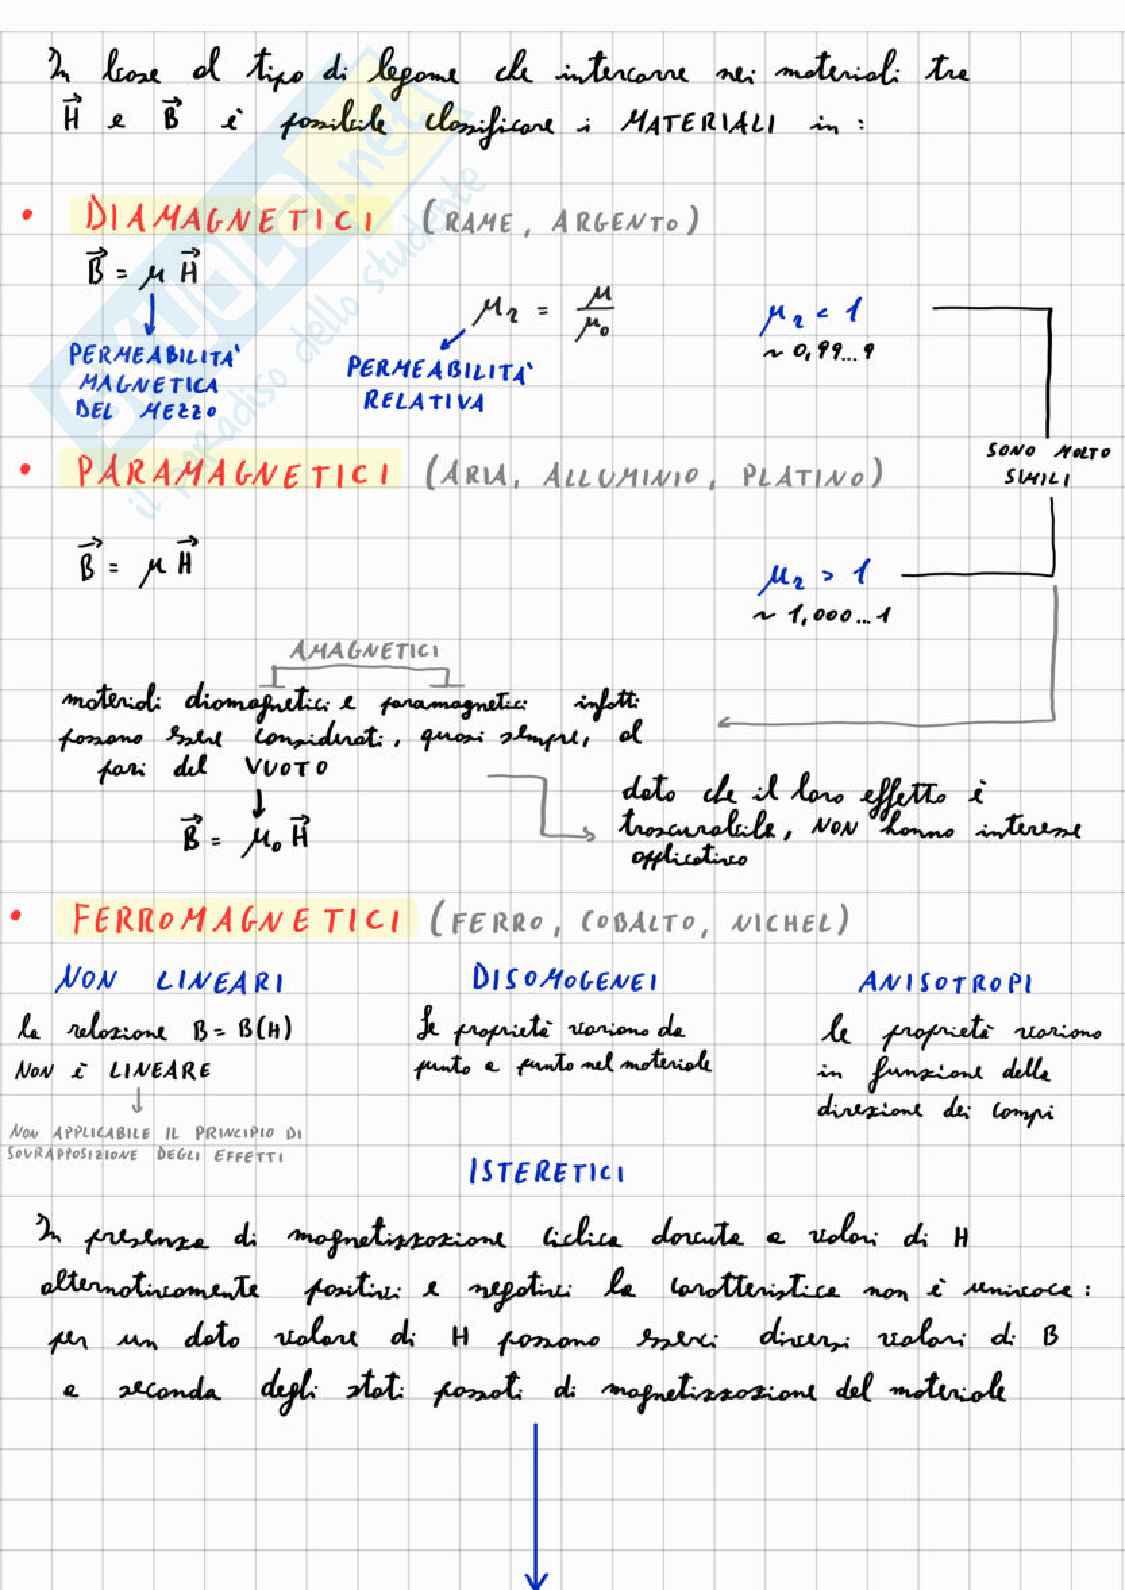 In base al tipo di legame che intercorre nei materiali tra
H⃗ e B⃗ è possibile classificare i MATERIALI in :
• DIAMAGNETICI (RAME, ARGENTO)
B⃗ = μ H⃗
PERMEABILITA'
MAGNETICA
DEL MEZZO
μr = μ/μ0
PERMEABILITA'
RELATIVA
μr < 1
~ 0,99...9
SONO MOLTO
SIMILI
• PARAMAGNETICI (ARIA, ALLUMINIO, PLATINO)
B⃗ = μ H⃗
μr > 1
~ 1,000...1
AMAGNETICI
materiali diamagnetici e paramagnetici infatti
possono essere considerati, quasi sempre, al
pari del VUOTO
B⃗ = μ0 H⃗
dato che il loro effetto è
trascurabile, NON hanno interesse
applicativo
• FERROMAGNETICI (FERRO, COBALTO, NICHEL)
NON LINEARI
la relazione B = B(H)
NON è LINEARE
NON APPLICABILE IL PRINCIPIO DI
SOVRAPPOSIZIONE DEGLI EFFETTI
DISOMOGENEI
Le proprietà variano da
punto a punto nel materiale
ANISOTROPI
le proprietà variano
in funzione della
direzione dei campi
ISTERETICI
In presenza di magnetizzazione ciclica dovuta a valori di H
alternativamente positivi e negativi la caratteristica non è univoca :
per un dato valore di H possono esserci diversi valori di B
a seconda degli stati passati di magnetizzazione del materiale
SKUOLA.net
il paradiso dello studente